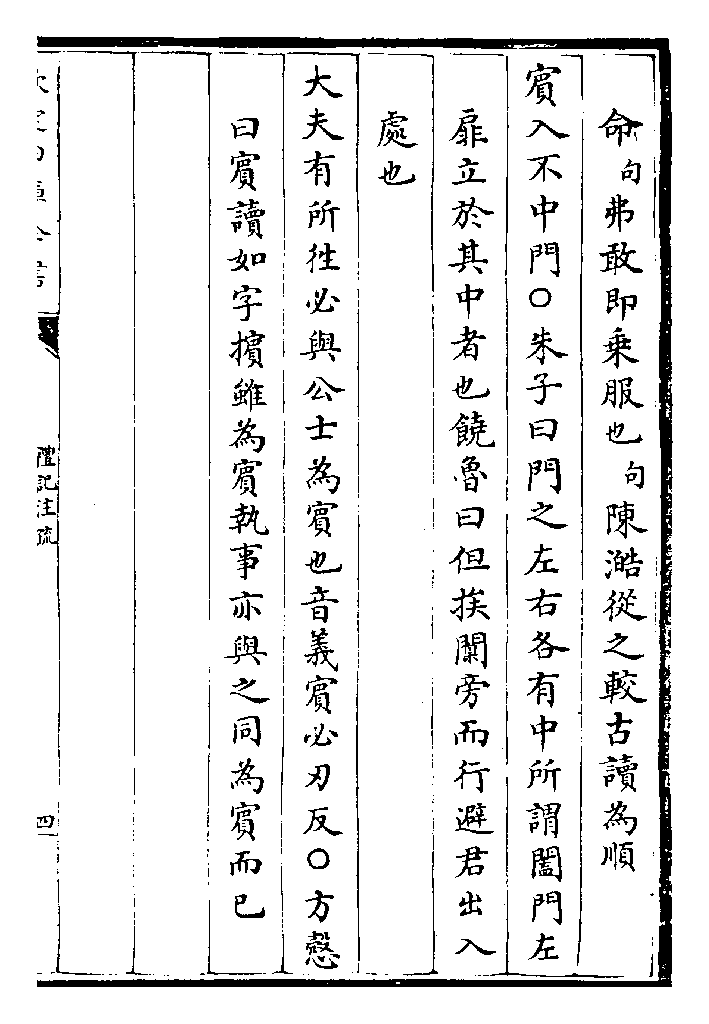 命句弗敢即乗服也句陳澔從之較古讀為順
賓入不中門○朱子曰門之左右各有中所謂闔門左
扉立於其中者也饒魯曰但挨闑旁而行避君出入
處也
大夫有所徃必與公士為賓也音義賓必刃反○方慤
曰賓讀如字擯雖為賓執事亦與之同為賓而已
禮記注疏
四